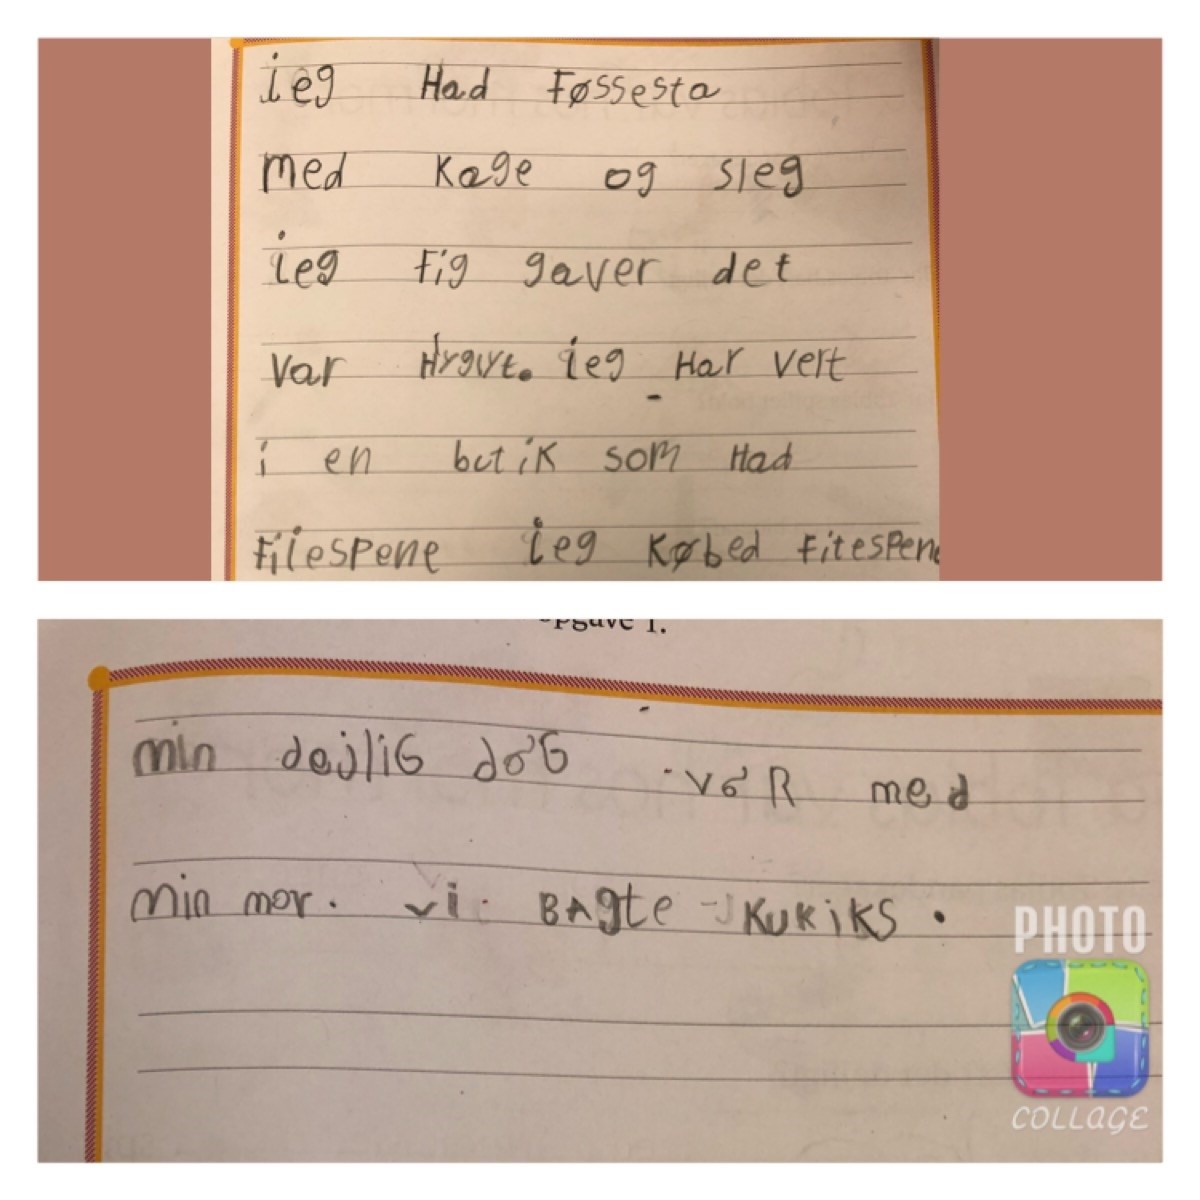 ieg Had Føssesta
med kage og sleg
ieg fig gaver det
var Hyguyt. ieg Har vert
i en butik som Had
Fitespene ieg købed Fitespene
opgave 1.
min dejliG då'G vå'R med
min mor. vi BAgte KUKiKS.
PHOTO
COLLAGE